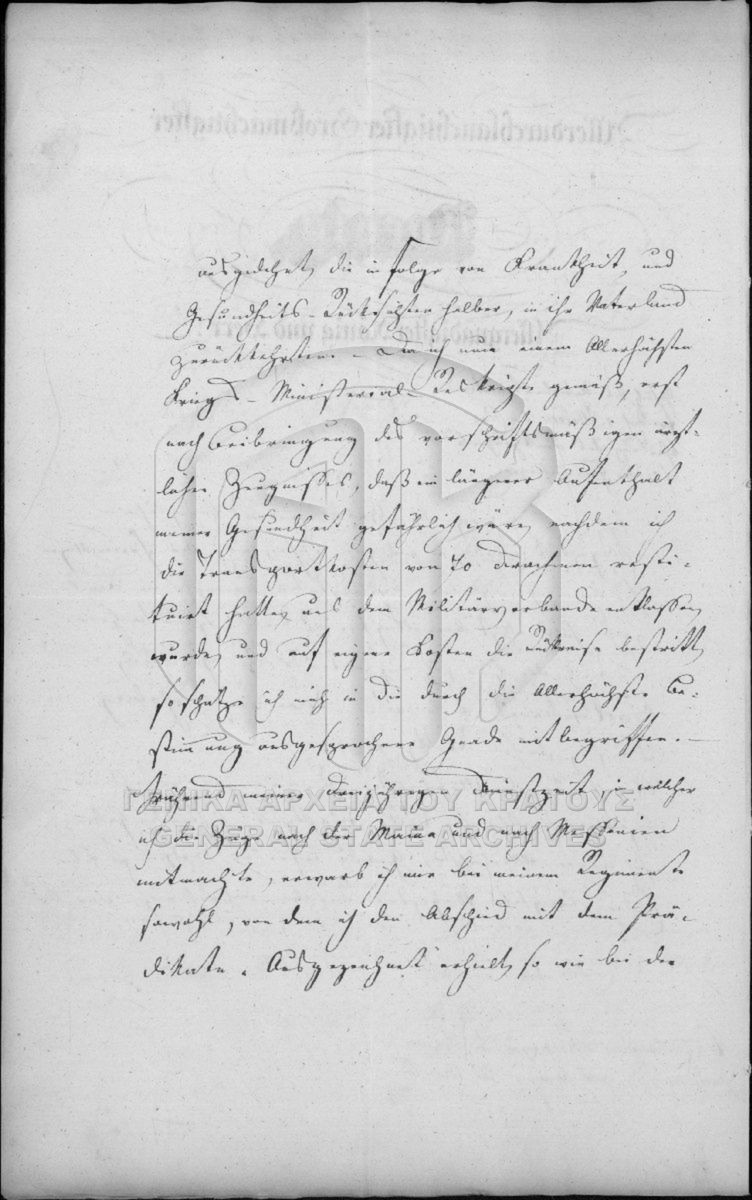 ausgedehnt, die in Folge von Krankheit, und
Gesundheits-Rücksichten halber, in ihr Vaterland
zurückkehrten. – Da ich nun einem Allerhöchsten
Kriegs-Ministerial-Reskripte gemäß, erst
nach Beibringung des vorschriftsmäßigen ärzt-
lichen Zeugnisses, daß ein längerer Aufenthalt
meiner Gesundheit gefährlich wäre, nachdem ich
die Transportkosten von 70 Drachmen resti-
tuirt hatte, aus dem Militärverbande entlassen
wurde, und auf eigene Kosten die Rückreise bestritt,
so schätze ich mich in die durch die Allerhöchste Be-
stimmung ausgesprochene Gnade mitbegriffen. –
Während meiner dreijährigen Dienstzeit, in welcher
ich die Züge nach der Maina und nach Messenien
mitmachte, erwarb ich mir bei meinem Regimente
sowohl, von dem ich den Abschied mit dem Prä-
dikate "Ausgezeichnet" erhielt, so wie bei der
ΓΕΝΙΚΑ ΑΡΧΕΙΑ ΤΟΥ ΚΡΑΤΟΥΣ
GENERAL STATE ARCHIVES